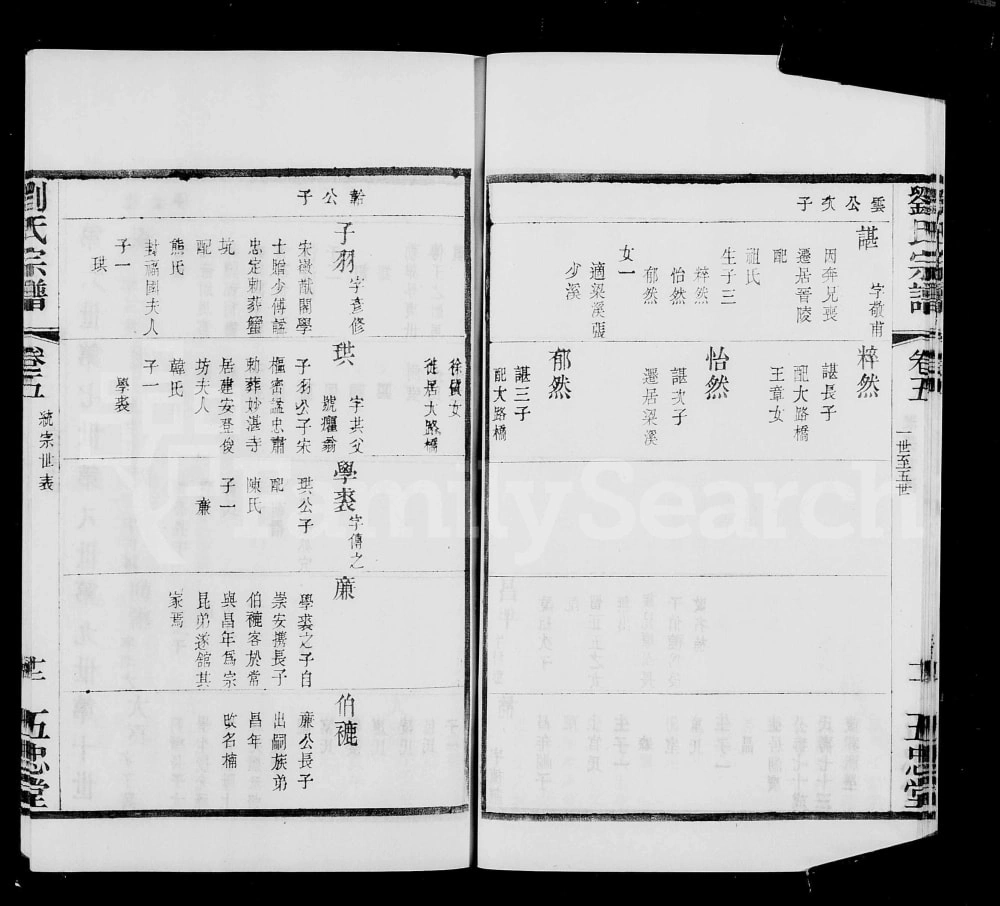 劉氏宗譜
卷五
一世至五世
十一
五忠堂
雲公次子
諶 字敬甫
因奔兄喪
遷居晉陵
配
祖氏
生子三
粹然
怡然
郁然
女一
適梁溪張
少溪
粹然
諶長子
配大路橋
王章女
怡然
諶次子
遷居梁溪
郁然
諶三子
配大路橋
徐碬女
徙居大路橋
韐公子
子羽 字彥修
宋徽猷閣學
士贈少傅諡
忠定勅葬蟹
坑
配
熊氏
封福國夫人
子一
珙
珙 字共父
號癯翁
子羽公子宋
樞密諡忠肅
勅葬妙湛寺
居建安登俊
坊夫人
韓氏
子一
學裘
學裘 字傳之
珙公子
配
陳氏
子一
㢘
㢘
學裘之子自
崇安携長子
伯䄡客於常
與昌年爲宗
昆弟遂舘其
家焉
伯䄡
㢘公長子
出嗣族弟
昌年
改名楠
劉氏宗譜
卷五
統宗世表
十二
五忠堂
FamilySearch